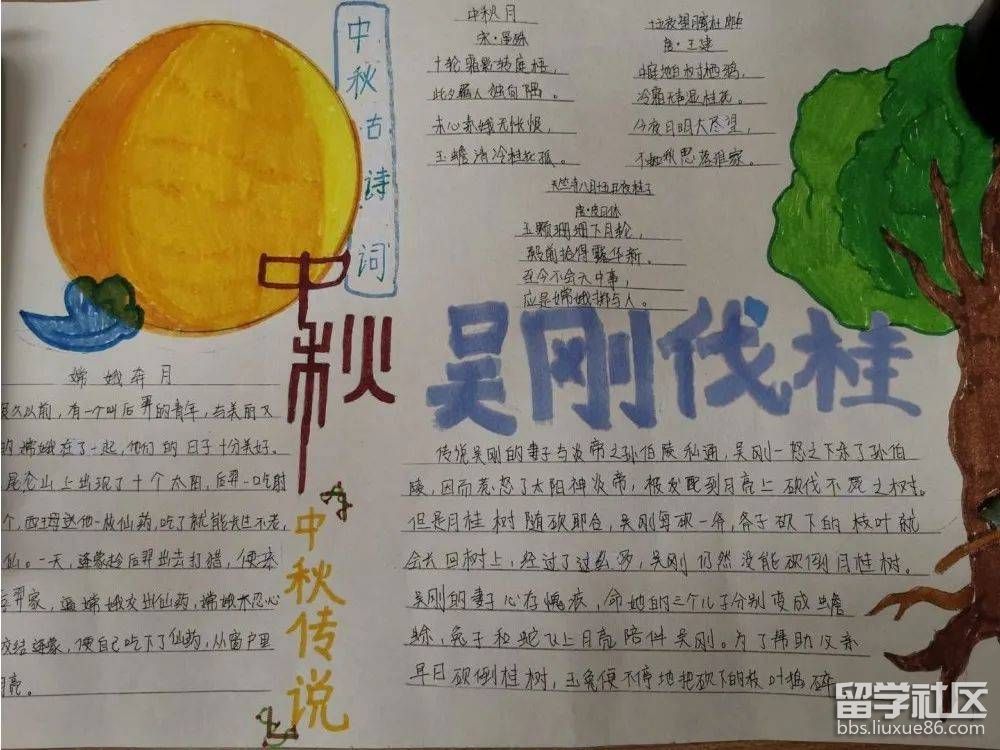 中秋古诗词
中秋月
宋·晏殊
十轮霜影转庭梧，
此夕羁人独向隅。
未必素娥无怅恨，
玉蟾清冷桂花孤。
十五夜望月寄杜郎中
唐·王建
中庭地白树栖鸦，
冷露无声湿桂花。
今夜月明人尽望，
不知秋思落谁家。
天竺寺八月十五日夜桂子
唐·皮日休
玉颗珊珊下月轮，
殿前拾得露华新。
至今不会天中事，
应是嫦娥掷与人。
中秋
吴刚伐桂
嫦娥奔月
久以前，有一个叫后羿的青年，与美丽又
的嫦娥在了一起，他们的日子十分美好。
昆仑山上出现了十个太阳，后羿一吃射
个，西王母送他一枚仙药，吃了就能长生不老，
仙。一天，逢蒙趁后羿出去打猎，便来
后羿家，逼嫦娥交出仙药，嫦娥不忍心
交给逢蒙，便自己吃下了仙药，从窗户里
月亮。
中秋传说
传说吴刚的妻子与炎帝之孙伯陵私通，吴刚一怒之下杀了孙伯
陵，因而惹怒了太阳神炎帝，被发配到月亮上砍伐不死之树。
但是月桂树随砍即合，吴刚每砍一斧，斧子砍下的枝叶就
会长回树上，经过了这么多，吴刚仍然没能砍倒月桂树。
吴刚的妻子心存愧疚，命她的三个儿子分别变成蟾
蜍，兔子和蛇飞上月亮陪伴吴刚。为了帮助父亲
早日砍倒桂树，玉兔便不停地把砍下的枝叶捣碎
留学社区
bbs.liuxue86.com